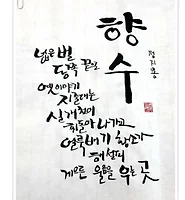 향
수
정지용
넓은 벌
동쪽 끝으로
옛이야기
지줄대는
실개천이
휘돌아 나가고
얼룩배기 황소가
해설피
게으른 울음을 우는 곳